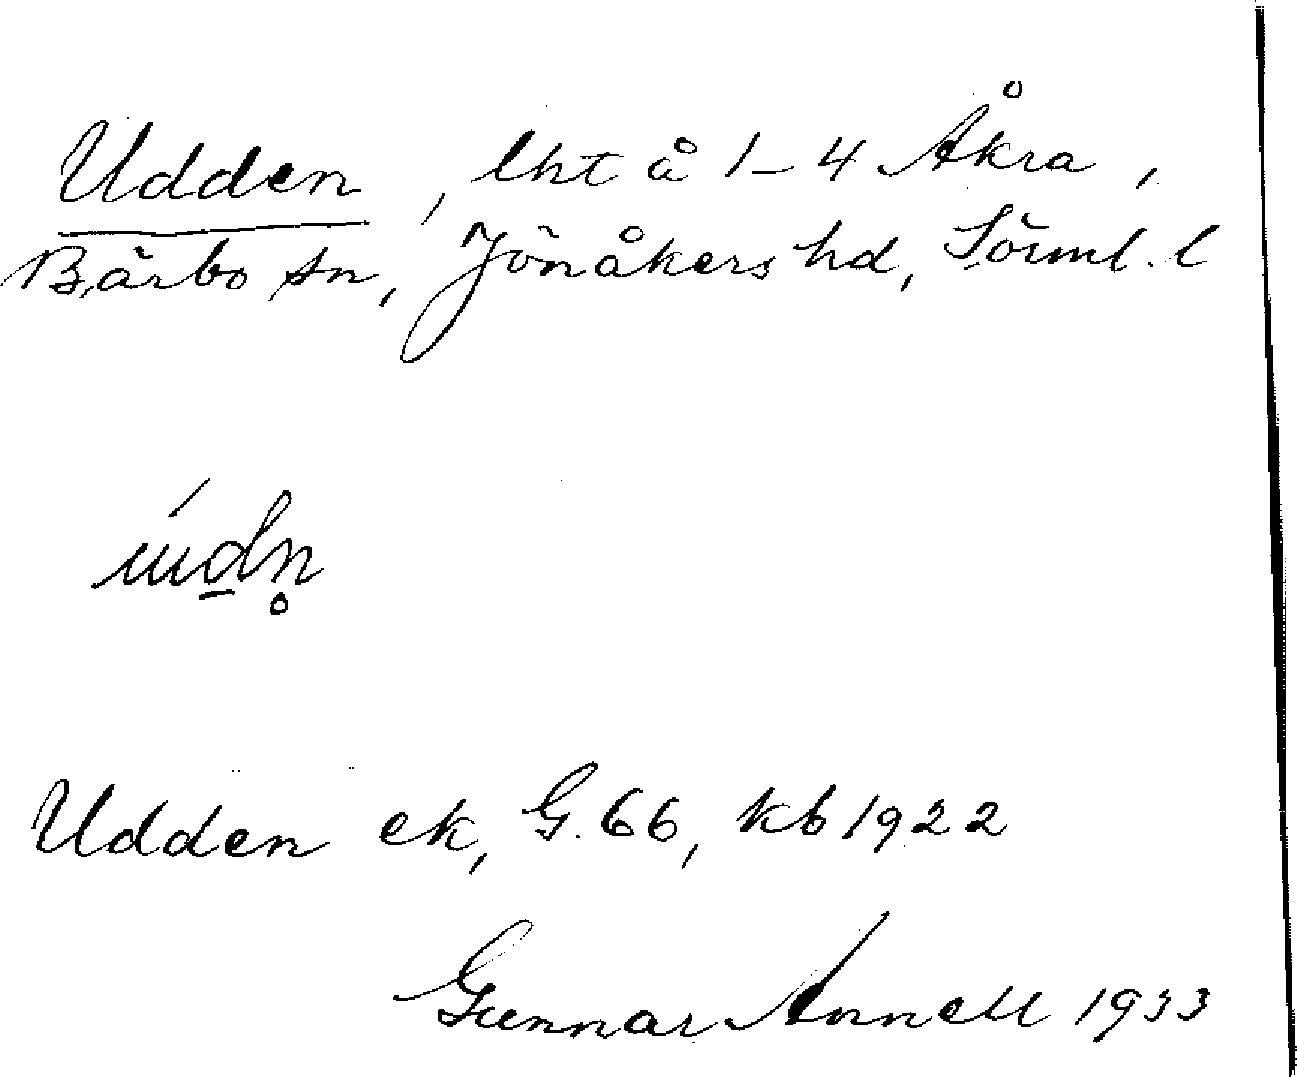 Udden, lht å 1-4 Åkra,
Bärbo sn, Jönåkers hd, Sörml. l
údn̥
Udden ek, G. 66, kb 1922
Gunnar Annell 1933